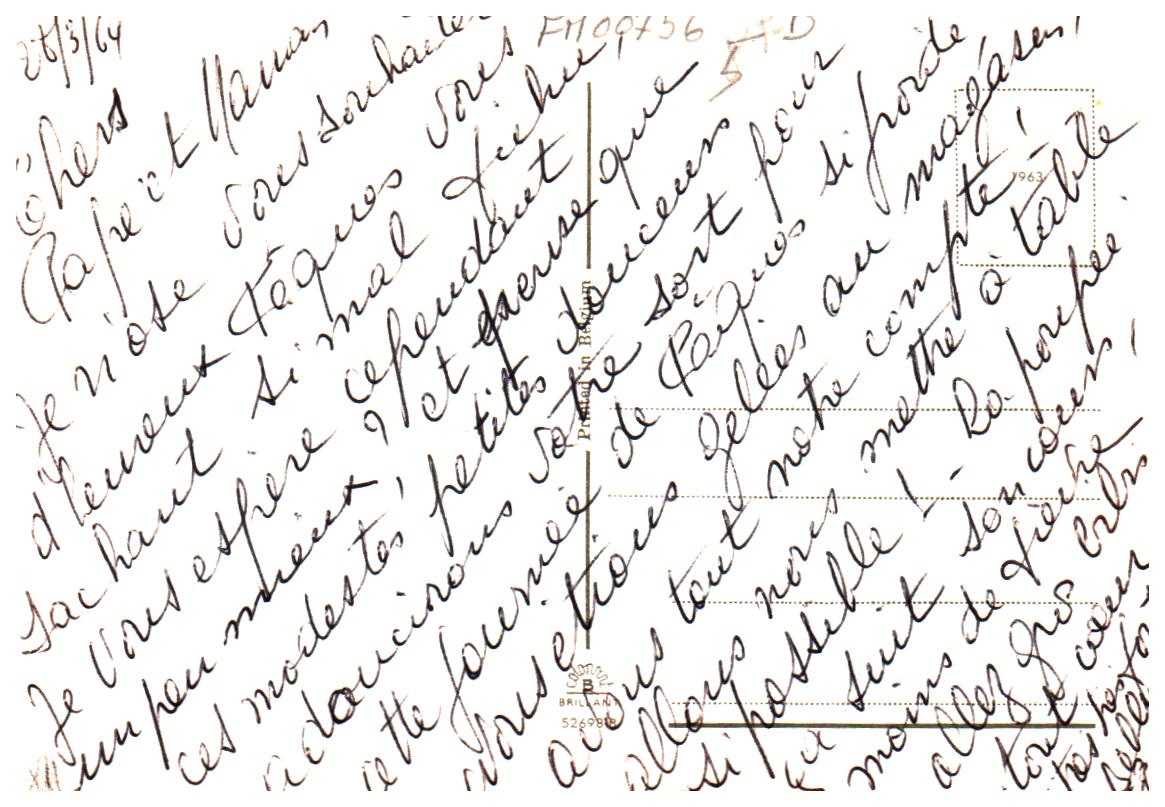 28/3/64
FM00756
5
Chers
Papa et Maman
Je n'ose vous souhaiter
d'heureux Pâques vous
sachant si mal fichu,
Je vous espère cependant
un peu mieux, et pense que
ces modestes, petites douceurs
adoucirons votre sort pour
cette journée de Pâques si froide,
nous étions gelées au magasin,
avons tout notre compte!
allons nous mettre à table
si possible! - La poupée
va suit son cours,
moins de fièvre
allez gros
tout cœur
1963
Printed in Belgium
colorprint
B
BRILLANT
5269818